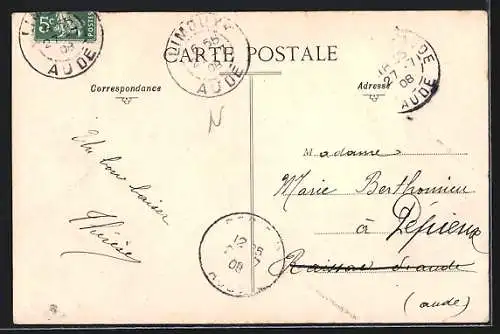 5c
POSTES
AUDE
LIMOUX
AUDE
27 -7
08
AUDE
CARTE POSTALE
Correspondance
Adresse
N
Un bon baiser
Thérèse
Madame
Marie Berthomieu
à Pépieux
Raissac d'aude
(aude)
12
08